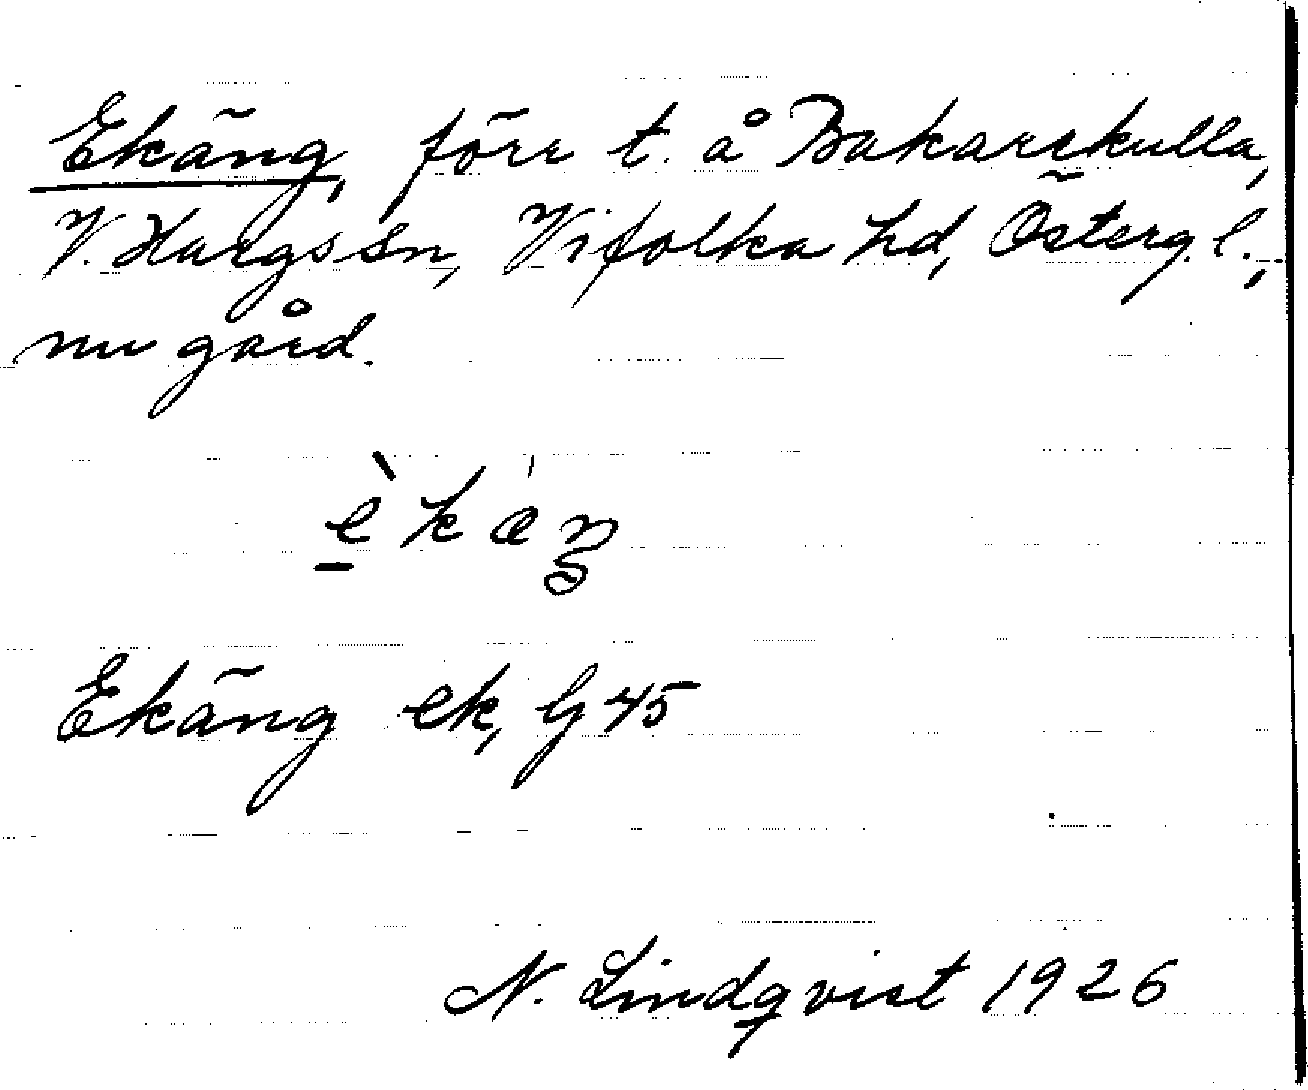 Ekäng, förr t. å Bakarekulla,
V. Hargs sn, Vifolka hd, Österg. l.,
nu gård.
è k ä́ ŋ
Ekäng ek, G 45
N. Lindqvist 1926